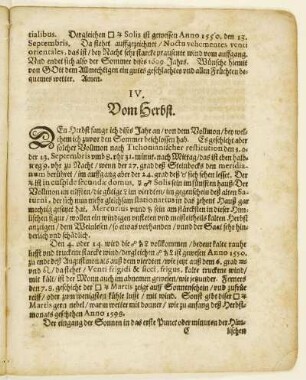 tialibus. Dergleichen □ ♃ Solis ist gewesen Anno 1550. den 13.
Septembris. Da stehet auffgezeichnet / Noctu vehementes venti
orientales, das ist / bey Nacht sehr starcke praisente wind vom auffgang.
Vnd endet sich also der Sommer diß 1609 Jahrs. Wünsche hiemit
von Gott dem Allmechtigen ein gutes geschlachtes vnd allen Früchten be-
quemes wetter. Amen.
IV.
Vom Herbst.
DEn Herbst fange ich dises Jahr an / von dem Vollmon / bey wel-
chem ich zuvor den Sommer beschlossen hab. Es geschicht aber
solcher Vollmon nach Tichonianischer restitution den 3. o-
der 13. Septembris vmb 8. vhr 31. minut. nach Mittag / das ist eben halb-
weg 9. vhr zu Nacht / wenn der 27. grad deß Steinbocks im meridiano
berühret / im auffgang aber der 24. grad deß sich sehen lesset. Der
♃ ist in cuspide secundæ domus, Solis sein im fünften hauß: Der
Vollmon im eilfften / die im vierdten / im gegenschein deß alten Sa-
turni, der sich nun mehr gleichsam stationarius in das zehent Hauß gar
mechtig gesetzt hat, Mercurius vnd sein im stärcksten in dieser Him-
lischen figur / wollen ein windiges wetter den meistentheils kalten Herbst
anzeigen / dem Weinlesen / so etwas vorhanden / vnd der Saat sehr hin-
derlich vnd schädlich.
Den 4. oder 14. wird die vollkommen / bedeut kalte rauhe
lufft vnd truckene starcke winde / dergleichen ist gewesen Anno 1550.
zu ende deß Augustmonats auß dem vierdten / wie jetzt auß dem 6. grad
vnd / da stehet / Venti frigidi & sicci, frigus, kalte truckene wind /
mit kält / ist der Monn auch im abnemen gewesen / wie jetzunder. Ferner
den 7. 8. geschicht die □ Martis zeige auff Sonnenschein / vnd zufuhr
oder zum wenigsten kühle lufft / mit wind. Sonst gibt diser □
Martis gern nebel / warm wetter mit donner / wie zu anfang deß Herbst-
monats geschehen Anno 1598.
Der eingang der Sonnen in das erste Punct oder minuten der Him-
C lischen